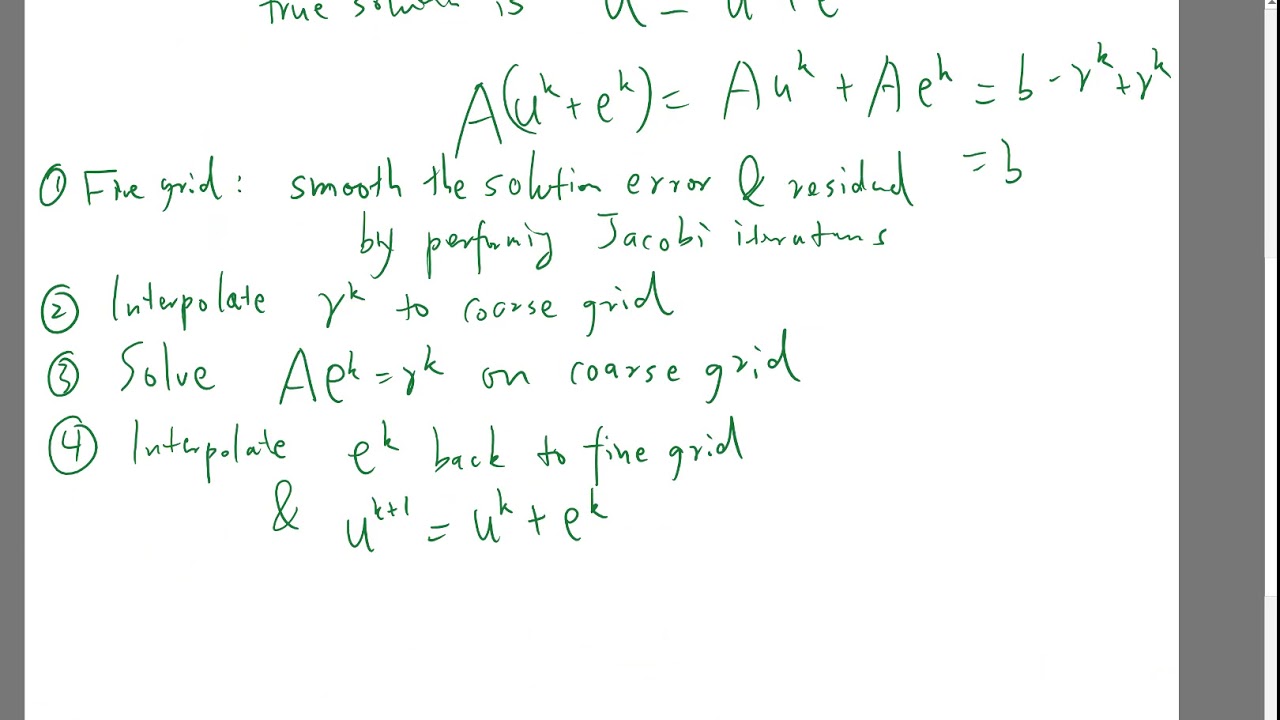 true solution is u = u + e
A(u^k + e^k) = A u^k + A e^k = b - r^k + r^k
= b
① Fine grid: smooth the solution error & residual
by performing Jacobi iterations
② Interpolate r^k to coarse grid
③ Solve A e^k = r^k on coarse grid
④ Interpolate e^k back to fine grid
& u^{k+1} = u^k + e^k